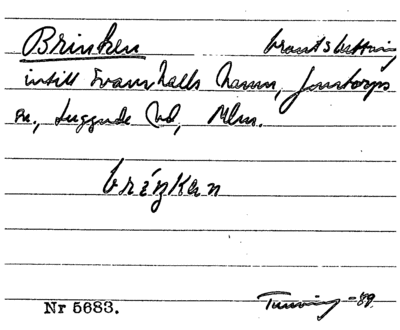 Brinken brant sluttning
intill Svanshalls hamn, Jonstorps
sn., Luggude hd, Mlm.
brίŋkan
Nr 5683. -89.